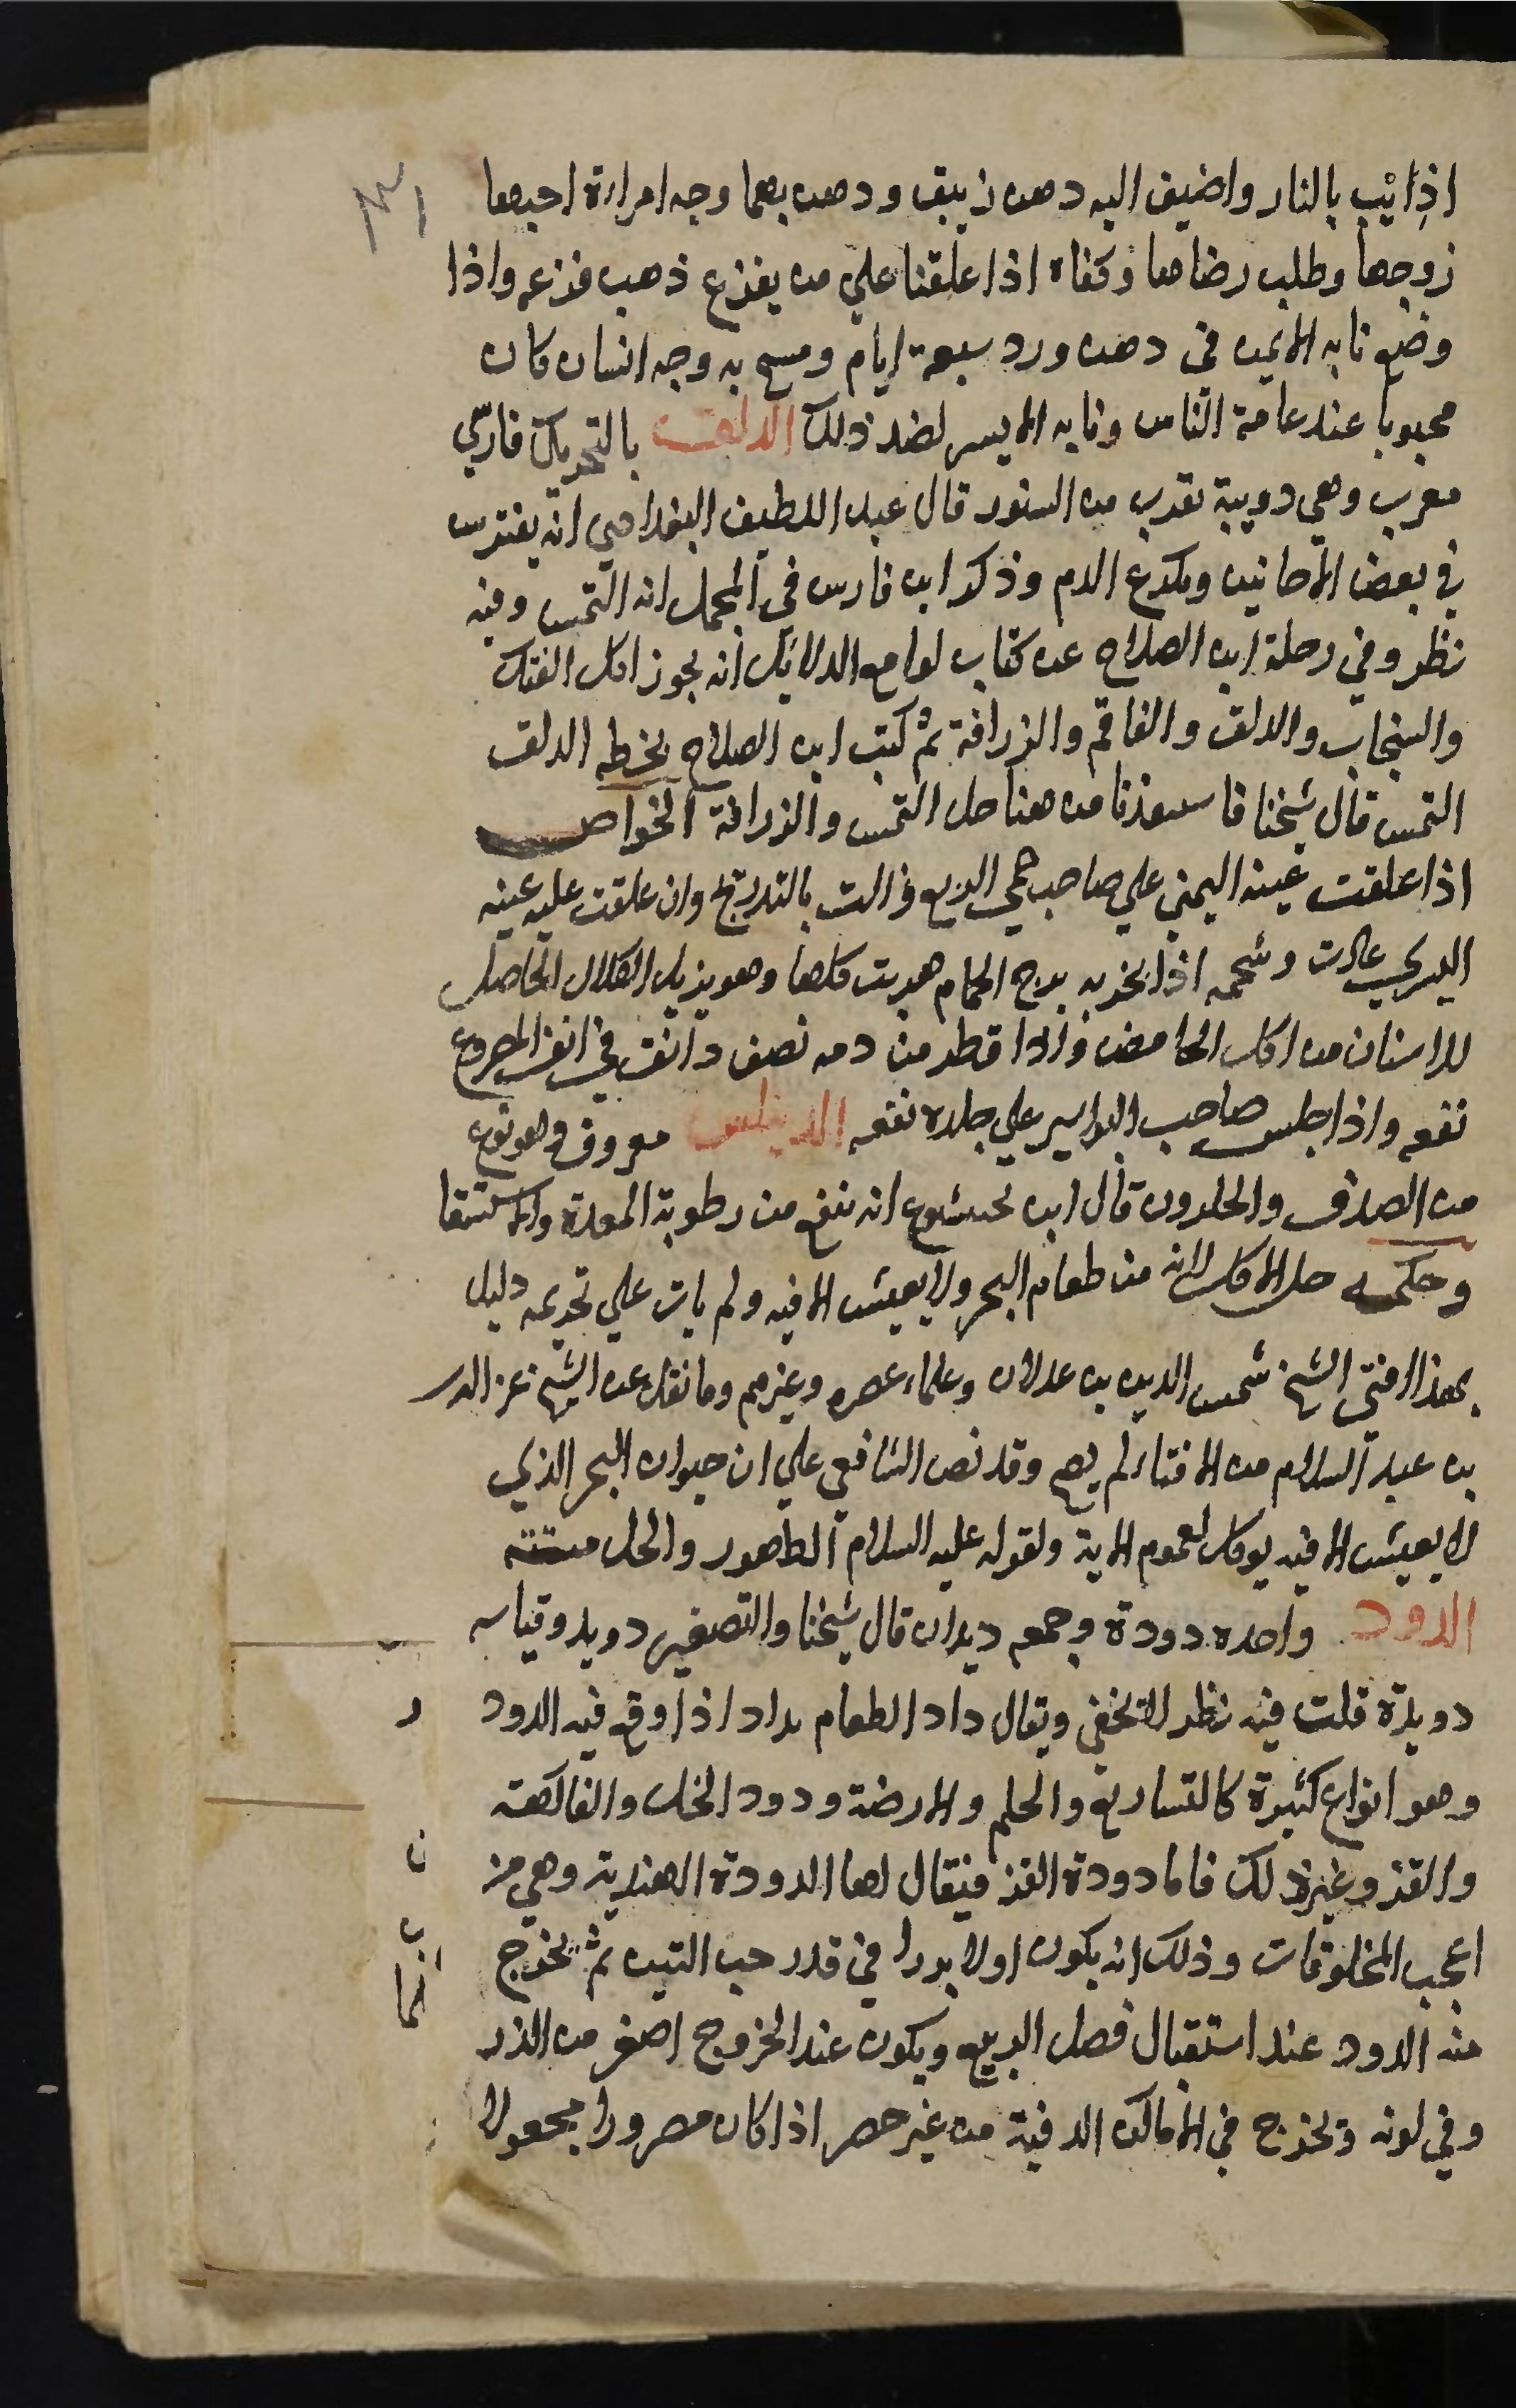 ٣١
اذا ئيب بالنار واضيف اليه دهن زيبق ودهن بهما وجه امراة احبها
زوجها وطلب رضاها وكفاه اذا علقنا علي من يفزع ذهب فزعه واذا
وضع نابه الايمن في دهن ورد سبعة ايام ومسح به وجه انسان كان
محبوبا عند عامة الناس ونابه الايسر لضد ذلك الدلق بالتحريك فارسي
معرب وهي دويبة تقرب من السنور قال عبد اللطيف البغدادي انه يفترس
في بعض الاحايين ويكرع الدم وذكر ابن فارس في المجمل انه النمس وفيه
نظر وفي رحلة ابن الصلاح عن كتاب لوامع الدلائل انه يجوز اكل الفنك
والسنجاب والدلق والقاقم والزرافة ثم كتب ابن الصلاح بخطه الدلق
النمس قال شيخنا فاستفدنا من هنا حل النمس والزرافة الخواص
اذا علقت عينه اليمني علي صاحب حمي الربع زالت بالتدريج وان علقت عليه عينه
اليسري عادت وشحمه اذا بخر به برج الحمام هربت كلها وهو يزيل الكلال الحاصل
للاسنان من اكل الحامض واذا قطر من دمه نصف دانق في انف المصروع
نفعه واذا جلس صاحب البواسير علي جلده نفعه الدينلس معروف وهو نوع
من الصدف والحلزون قال ابن بختيشوع انه ينفع من رطوبة المعدة والاستسقا
وحكمه حل الاكل لانه من طعام البحر ولا يعيش الا فيه ولم يات علي تحريمه دليل
بهذا افتي الشيخ شمس الدين بن عدلان وعلماء عصره وغيرهم وما نقل عن الشيخ عز الدين
بن عبد السلام من الافتاء لم يصح وقد نص الشافعي علي ان حيوان البحر الذي
لا يعيش الا فيه يوكل لعموم الاية ولقوله عليه السلام الطهور والحل ميتته
الدود واحده دودة وجمعه ديدان قال شيخنا والتصغير دويد وقياسه
دويدة قلت فيه نظر لا تخفي ويقال داد الطعام يداد اذا وقع فيه الدود
وهو انواع كثيرة كالتساريع والحلم والارضة ودود الخل والفاكهة
والقز وغير ذلك فاما دودة القز فيقال لها الدودة الهندية وهي من
اعجب المخلوقات وذلك انه يكون اولا بزرا في قدر حب التين ثم يخرج
منه الدود عند استقبال فصل الربيع ويكون عند الخروج اصغر من الذر
وفي لونه ويخرج في الاماكن الدفية من غير حصر اذا كان مصرورا مجعولا